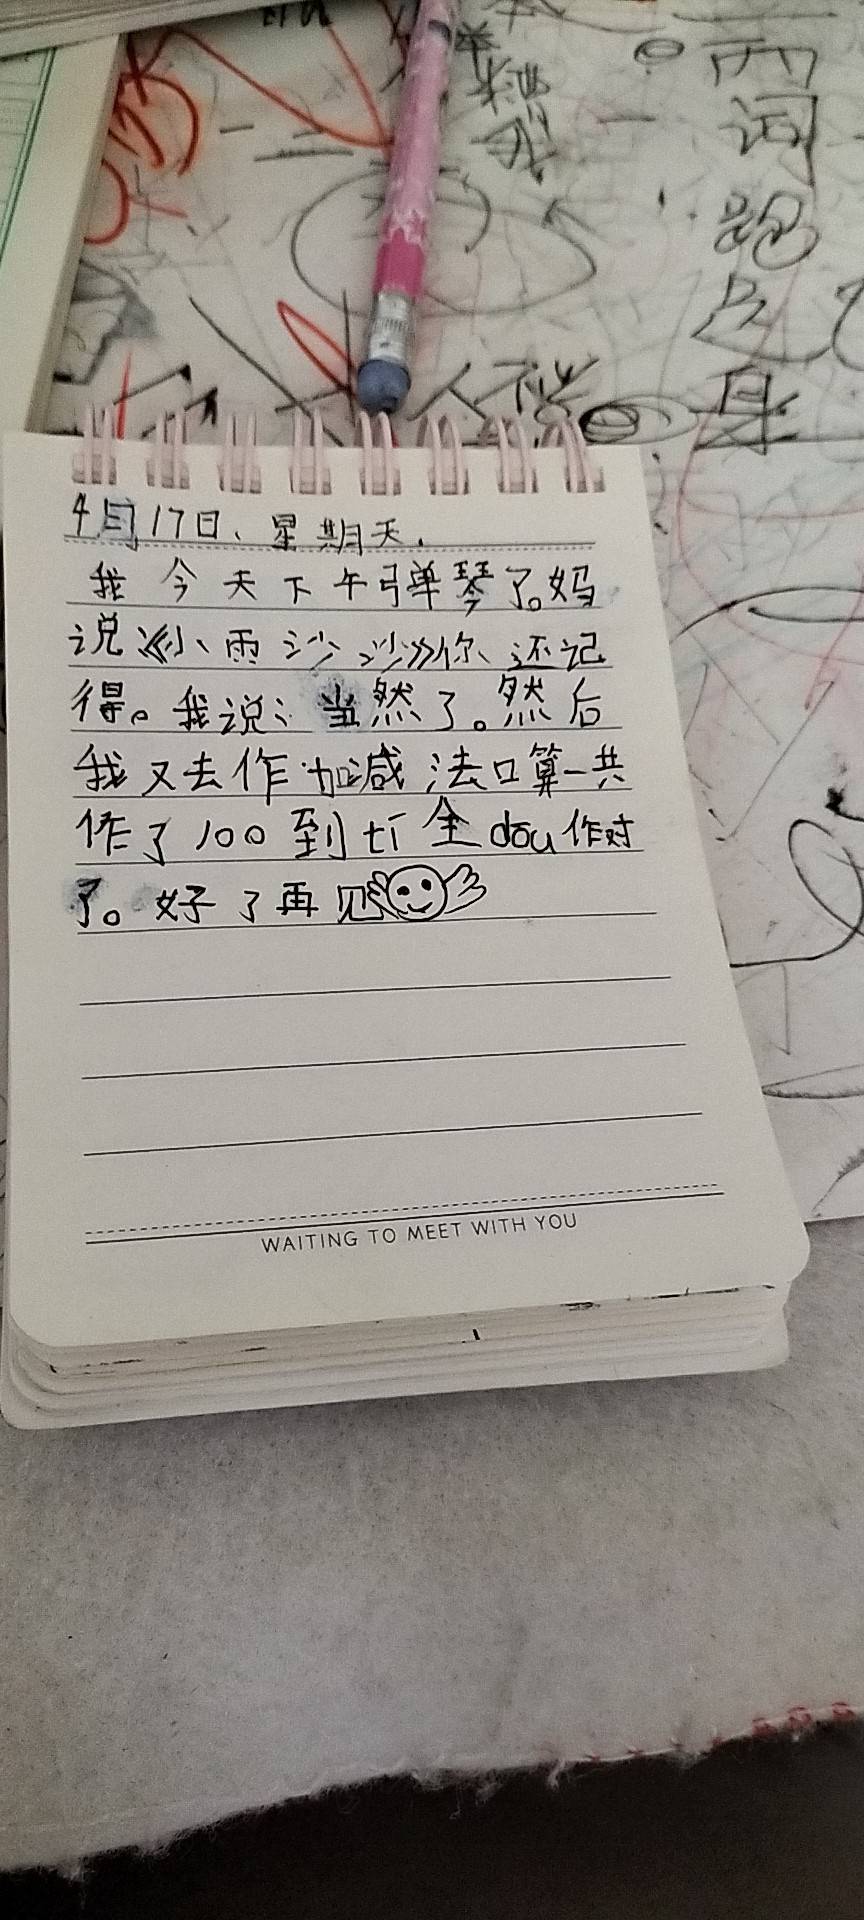 两
词
跑
点
身
人
4月17日、星期天.
我今天下午弹琴了。妈
说《小雨沙沙》你、还记
得。我说：当然了。然后
我又去作加减法口算一共
作了100到tí全dōu作对
了。好了再见
WAITING TO MEET WITH YOU